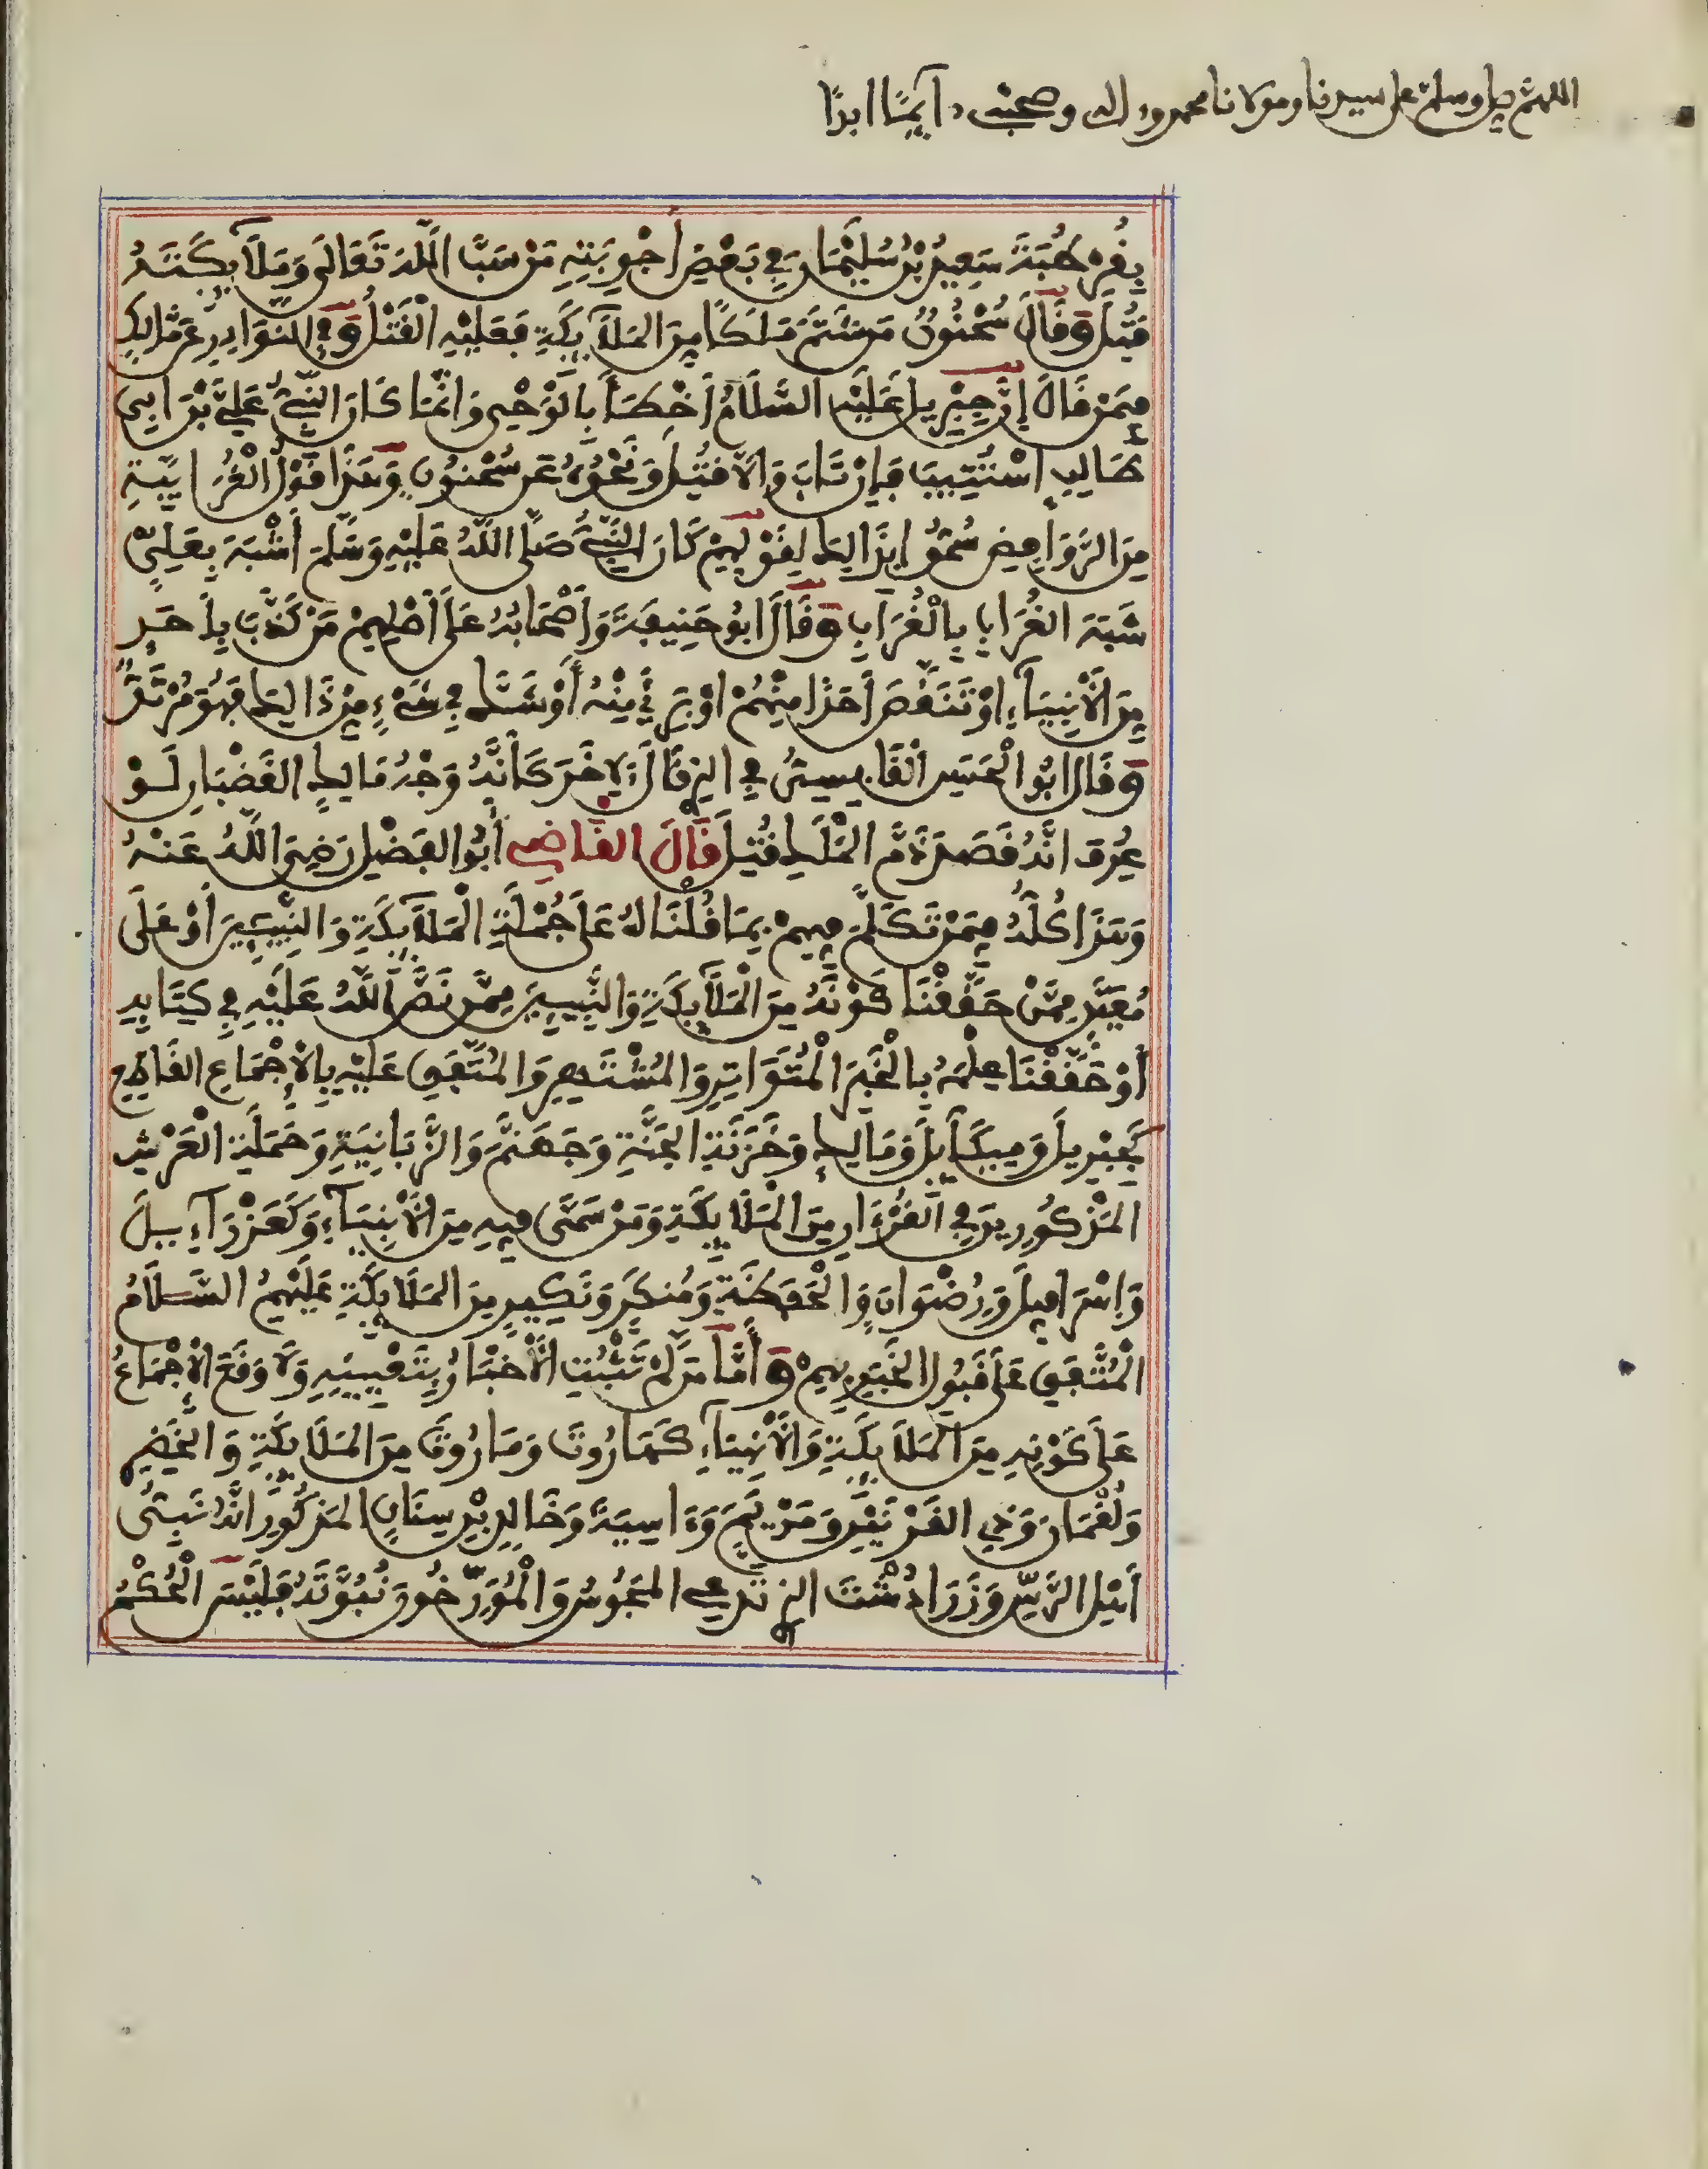 اللهم صل وسلم على سيدنا ومولانا محمد وءاله وصحبه دآيمًا ابدًا
بِقُرْطُبَةَ سَعِيدُ بْنُ سُلَيْمَانَ فِي بَعْضِ أَجْوِبَتِهِ مَنْ سَبَّ اللَّهَ تَعَالَى وَمَلَآيِكَتَهُ
قُتِلَ وَقَالَ سُحْنُونٌ مَنْ شَتَمَ مَلَكًا مِنَ الْمَلَآيِكَةِ فَعَلَيْهِ الْقَتْلُ وَفِي النَّوَادِرِ عَنْ مَّالِكٍ
فِيمَنْ قَالَ إِنَّ جِبْرِيلَ عَلَيْهِ السَّلَامُ أَخْطَأَ بِالْوَحْيِ وَإِنَّمَا كَانَ النَّبِيُّ عَلِيَّ بْنَ أَبِي
طَالِبٍ اسْتُتِيبَ فَإِنْ تَابَ وَإِلَّا قُتِلَ وَنَحْوُهُ عَنْ سُحْنُونٍ وَهَذَا قَوْلُ الْغُرَابِيَّةِ
مِنَ الرَّوَافِضِ سُمُّوا بِذَالِكَ لِقَوْلِهِمْ كَانَ النَّبِيُّ صَلَّى اللَّهُ عَلَيْهِ وَسَلَّمَ أَشْبَهَ بِعَلِيٍّ
شَبَهَ الْغُرَابِ بِالْغُرَابِ وَقَالَ أَبُو حَنِيفَةَ وَأَصْحَابُهُ عَلَى أَصْلِهِمْ مَنْ كَذَّبَ بِأَحَدٍ
مِنَ الْأَنْبِيَآءِ أَوْ تَنَقَّصَ أَحَدًا مِنْهُمْ أَوْ بَرِئَ مِنْهُ أَوْ شَكَّ فِي شَيْءٍ مِنْ ذَالِكَ فَهُوَ مُرْتَدٌّ
وَقَالَ أَبُو الْحَسَنِ الْقَابِسِيُّ فِي الذِي قَالَ لِآخَرَ كَأَنَّهُ وَجْهُ مَالِكٍ الْغَضْبَانِ لَوْ
عُرِفَ أَنَّهُ قَصَدَ ذَمَّ الْمَلَكِ قُتِلَ قَالَ الْقَاضِي أَبُو الْفَضْلِ رَضِيَ اللَّهُ عَنْهُ
وَهَذَا كُلُّهُ فِيمَنْ تَكَلَّمَ فِيهِمْ بِمَا قُلْنَاهُ عَلَى جُمْلَةِ الْمَلَآيِكَةِ وَالنَّبِيِّينَ أَوْ عَلَى
مُعَيَّنٍ مِمَّنْ حَقَّقْنَا كَوْنَهُ مِنَ الْمَلَآيِكَةِ وَالنَّبِيِّينَ مِمَّنْ نَصَّ اللَّهُ عَلَيْهِ فِي كِتَابِهِ
أَوْ حَقَّقْنَا عِلْمَهُ بِالْخَبَرِ الْمُتَوَاتِرِ وَالْمُشْتَهِرِ وَالْمُتَّفَقِ عَلَيْهِ بِالْإِجْمَاعِ الْقَاطِعِ
كَجِبْرِيلَ وَمِيكَآيِلَ وَمَالِكٍ وَخَزَنَةِ الْجَنَّةِ وَجَهَنَّمَ وَالزَّبَانِيَةِ وَحَمَلَةِ الْعَرْشِ
الْمَذْكُورِينَ فِي الْقُرْءَانِ مِنَ الْمَلَايِكَةِ وَمَنْ سَمَّى فِيهِ مِنَ الْأَنْبِيَآءِ وَكَعَزْرَآءِيلَ
وَإِسْرَافِيلَ وَرِضْوَانَ وَالْحَفَظَةِ وَمُنْكَرٍ وَنَكِيرٍ مِنَ الْمَلَايِكَةِ عَلَيْهِمُ السَّلَامُ
الْمُتَّفَقِ عَلَى قَبُولِ الْخَبَرِ بِهِمْ وَأَمَّا مَنْ لَمْ تَثْبُتِ الْأَخْبَارُ بِتَعْيِينِهِ وَلَا وَقَعَ الْإِجْمَاعُ
عَلَى كَوْنِهِ مِنَ الْمَلَآيِكَةِ وَالْأَنْبِيَآءِ كَهَارُوتَ وَمَارُوتَ مِنَ الْمَلَايِكَةِ وَالْخَضِرِ
وَلُقْمَانَ وَذِي الْقَرْنَيْنِ وَمَرْيَمَ وَءَاسِيَةَ وَخَالِدِ بْنِ سِنَانٍ الْمَذْكُورِ أَنَّهُ نَبِيُّ
أَهْلِ الرَّسِّ وَزَرَادُشْتَ الذِي تَدَّعِي الْمَجُوسُ وَالْمُؤَرِّخُونَ نُبُوَّتَهُ فَلَيْسَ الْحُكْمُ